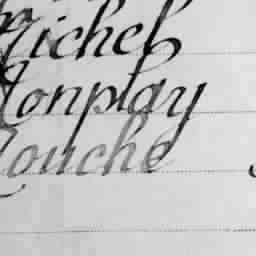 Michel
Monplay
Mouche